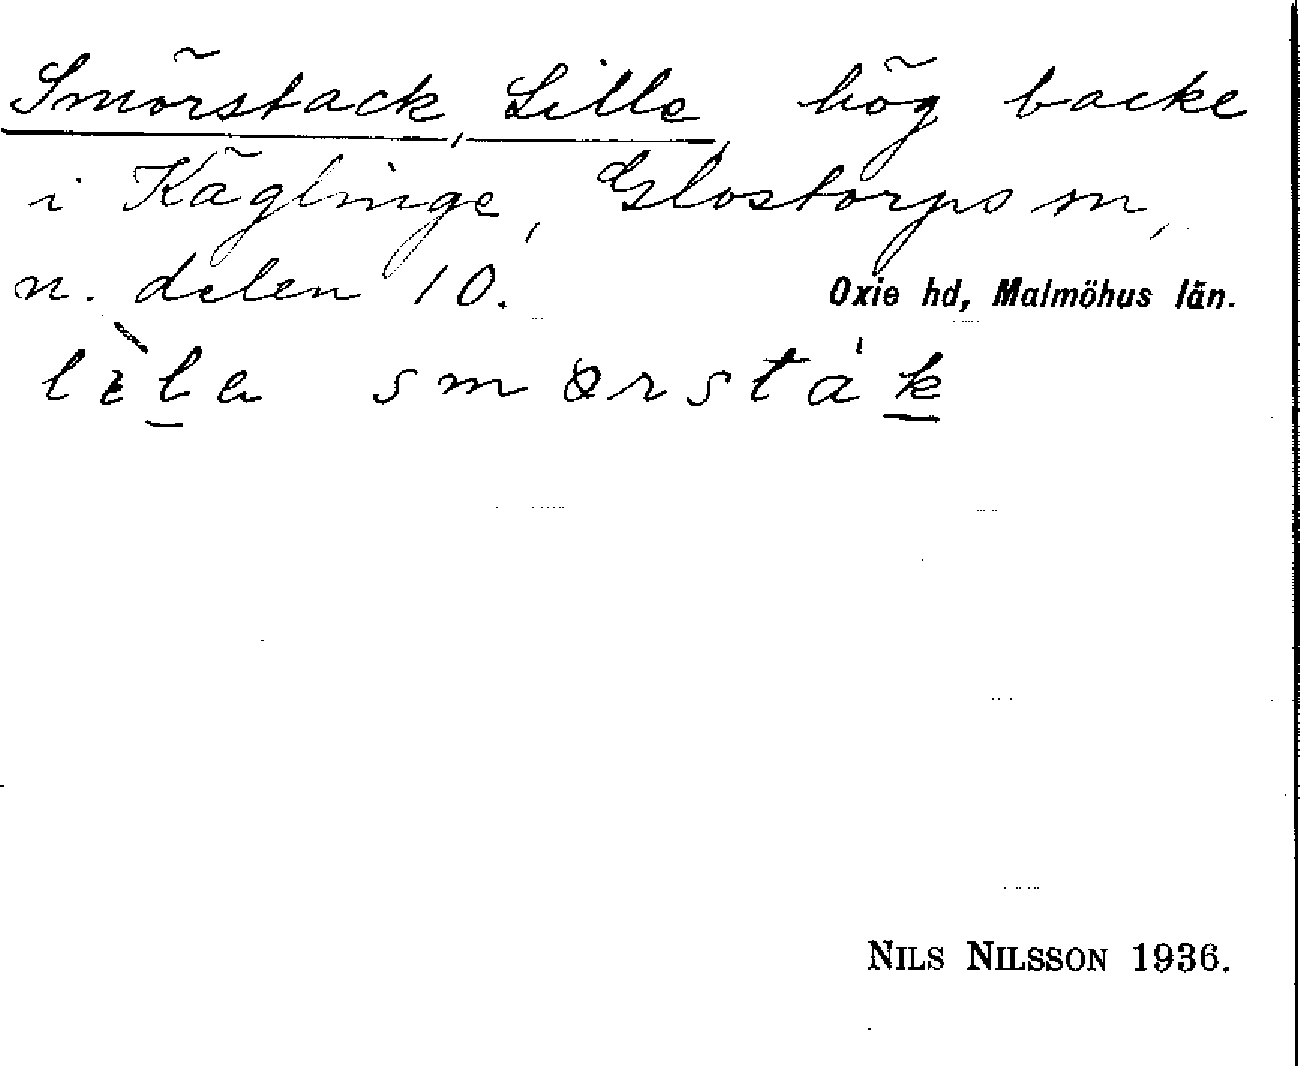 Smörstack, Lille, hög backe
i Käglinge, Glostorps sn,
n. delen 10. Oxie hd, Malmöhus län.
lìla smørsták
NILS NILSSON 1936.